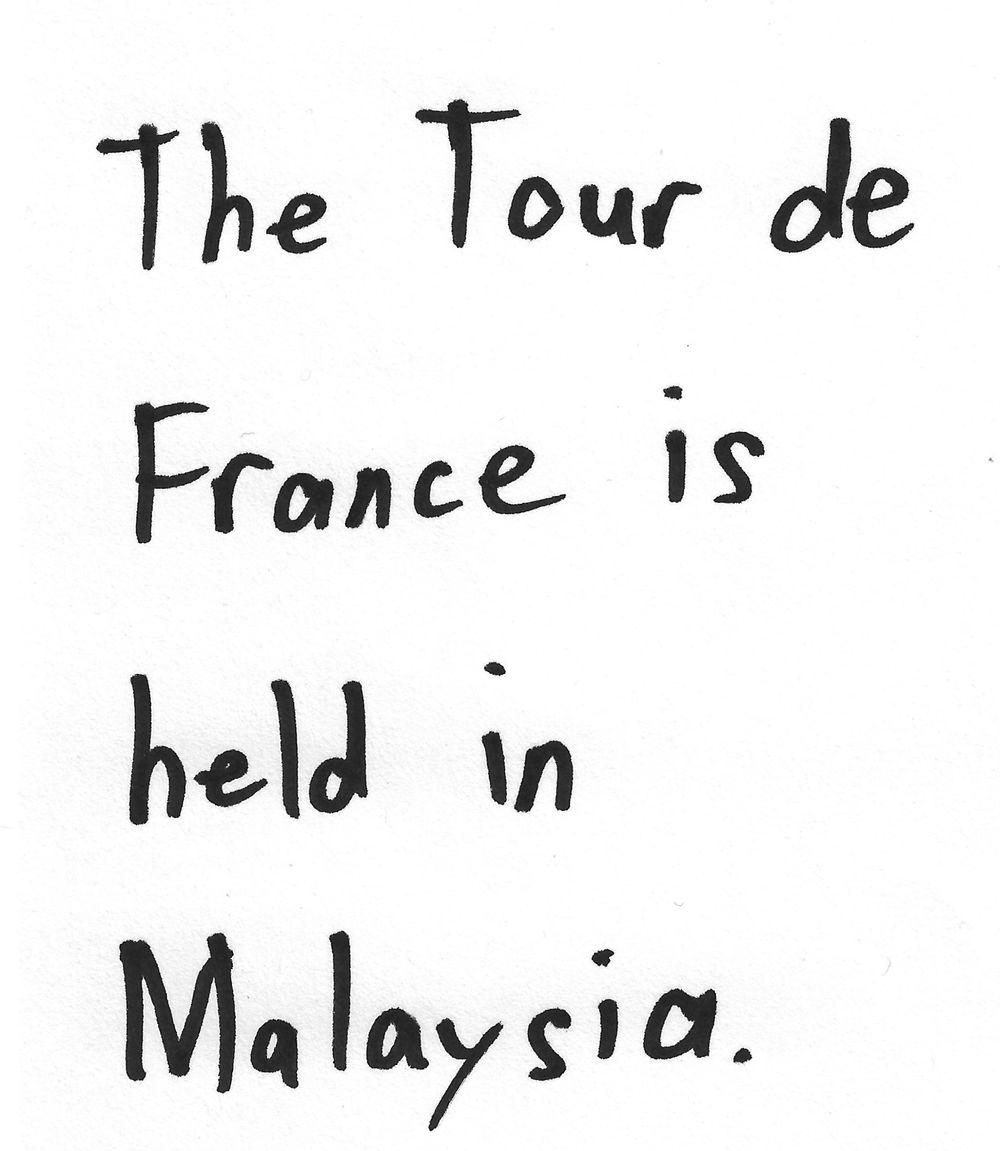 The Tour de
France is
held in
Malaysia.